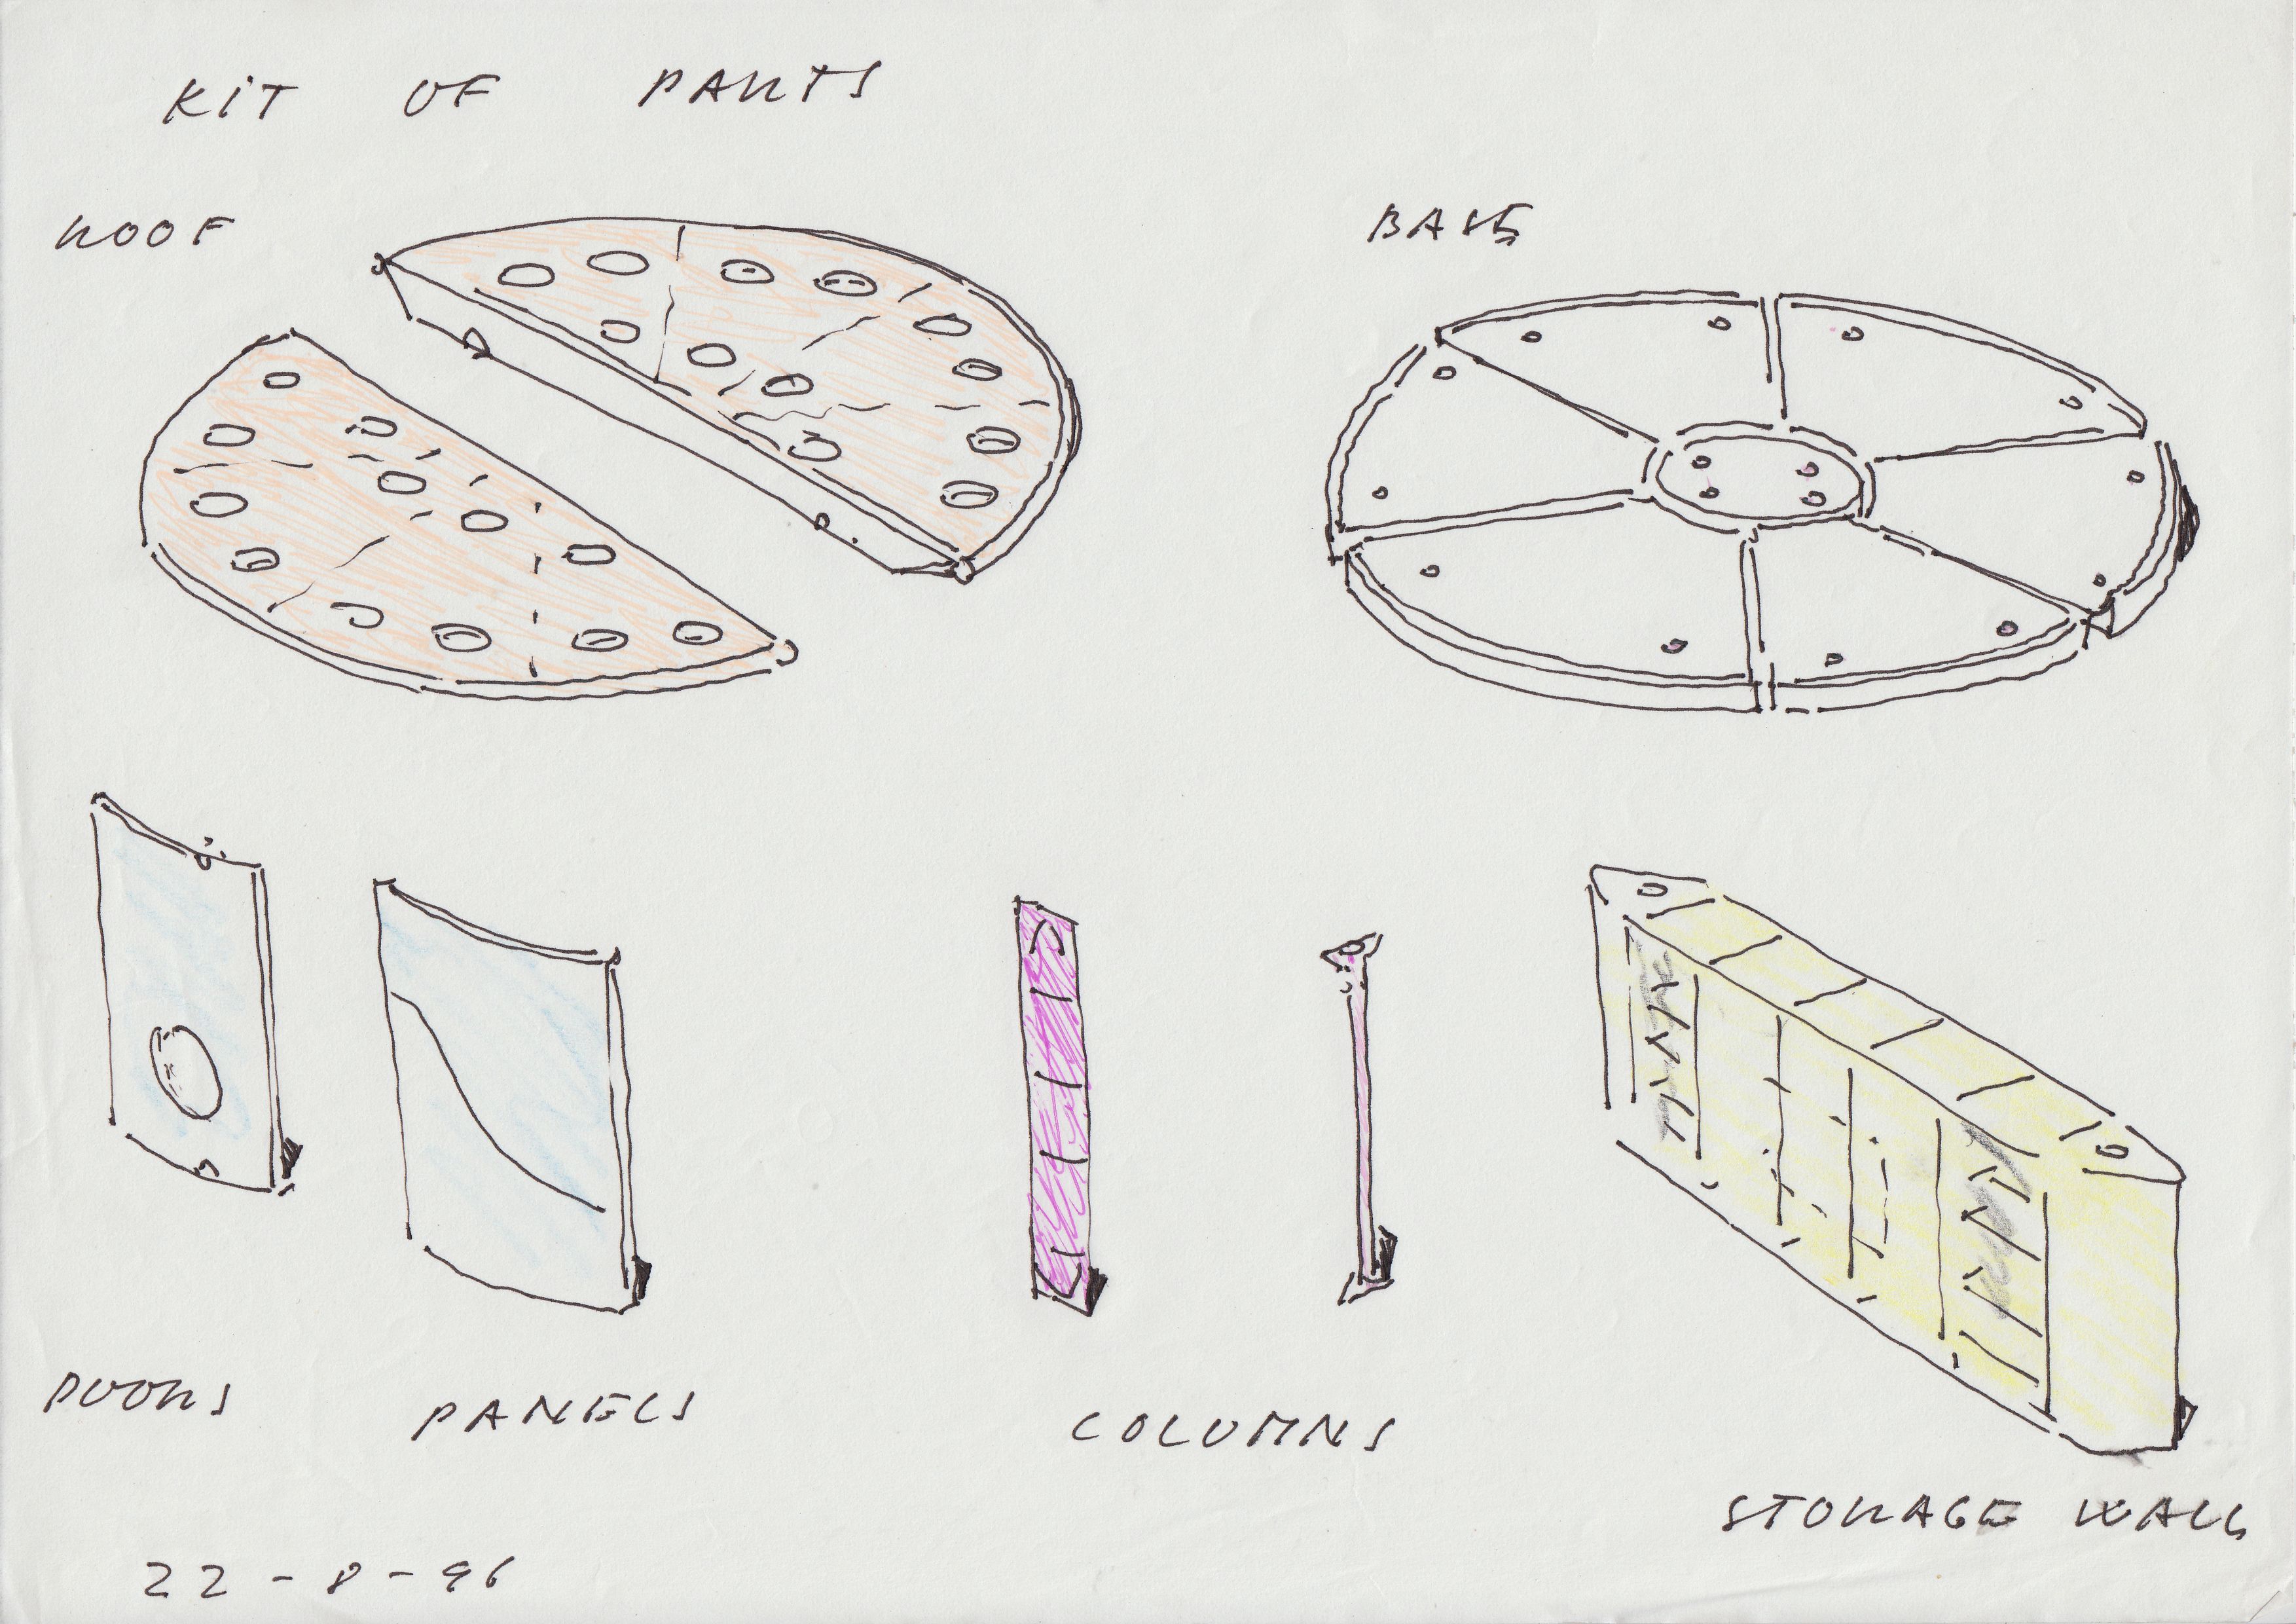 KIT OF PARTS
ROOF
BASE
DOORS
PANELS
COLUMNS
STORAGE WALL
22-8-96